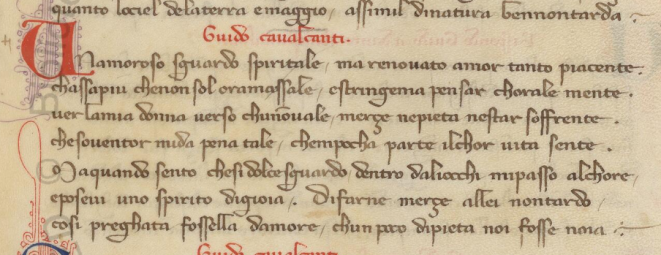 quanto lociel delaterra emaggio, assimil dinatura bennontarda
Guido caualcanti.
Unamoroso sguardo spiritale, ma renouato amor tanto piacente.
chassapiu chenonsol oramassale, estringema pensar chorale mente.
uer lamia donna uerso chunouale, merze nepieta nestar soffrente.
chesouentor mida pena tale, chempocha parte ilchor uita sente.
Maquando sento chesidolcesguardo, dentro daliocchi mipasso alchore,
eposeui uno spirito digioia. Difarne merze allei nontardo,
cosi preghata fossella damore, chunpoco dipieta noi fosse noia